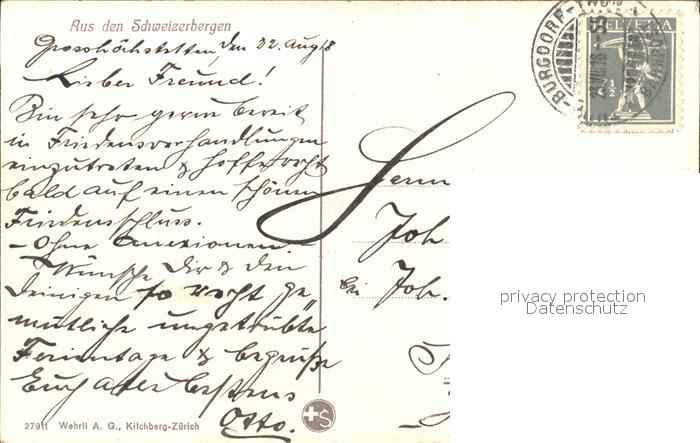 Aus den Schweizerbergen
Grosshöchstetten, den 22. Aug 18
Lieber Freund!
Bin sehr gerne bereit
in Friedensverhandlungen
einzutreten & hoffe recht
bald auf einen schönen
Friedensschluss.
– Ohne Annexionen.
Wünsche Dir & den
Deinigen so recht ge„
mütliche ungetrübte
Ferientage & begrüsse
Euch alle bestens
Otto.
27911 Wehrli A. G., Kilchberg-Zürich
S
HELVETIA
7½
BURGDORF-THUN
Herrn
Joh
bei Joh.
privacy protection
Datenschutz